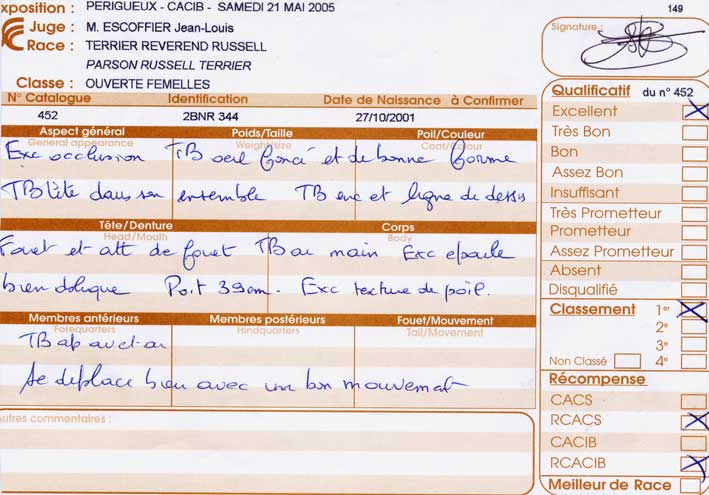 xposition : PERIGUEUX - CACIB - SAMEDI 21 MAI 2005
149
Juge : M. ESCOFFIER Jean-Louis
Signature :
Race : TERRIER REVEREND RUSSELL
PARSON RUSSELL TERRIER
Classe : OUVERTE FEMELLES
N° Catalogue Identification Date de Naissance à Confirmer
452 2BNR 344 27/10/2001
Aspect général Poids/Taille Poil/Couleur
General appearance Weight/size Coat/Colour
Exc occlusion TB oeil foncé et de bonne forme
TB tête dans son ensemble TB enc et ligne de dessus
Tête/Denture Corps
Head/Mouth Body
Fouet et att de fouet TB au main Exc epaule
bien oblique Poit 39cm. Exc texture de poil.
Membres antérieurs Membres postérieurs Fouet/Mouvement
Forequarters Hindquarters Tail/Movement
TB ap av et ar
Se deplace bien avec un bon mouvement
Autres commentaires :
Qualificatif du n° 452
Excellent X
Très Bon
Bon
Assez Bon
Insuffisant
Très Prometteur
Prometteur
Assez Prometteur
Absent
Disqualifié
Classement 1er X
2e
3e
Non Classé 4e
Récompense
CACS
RCACS X
CACIB
RCACIB X
Meilleur de Race